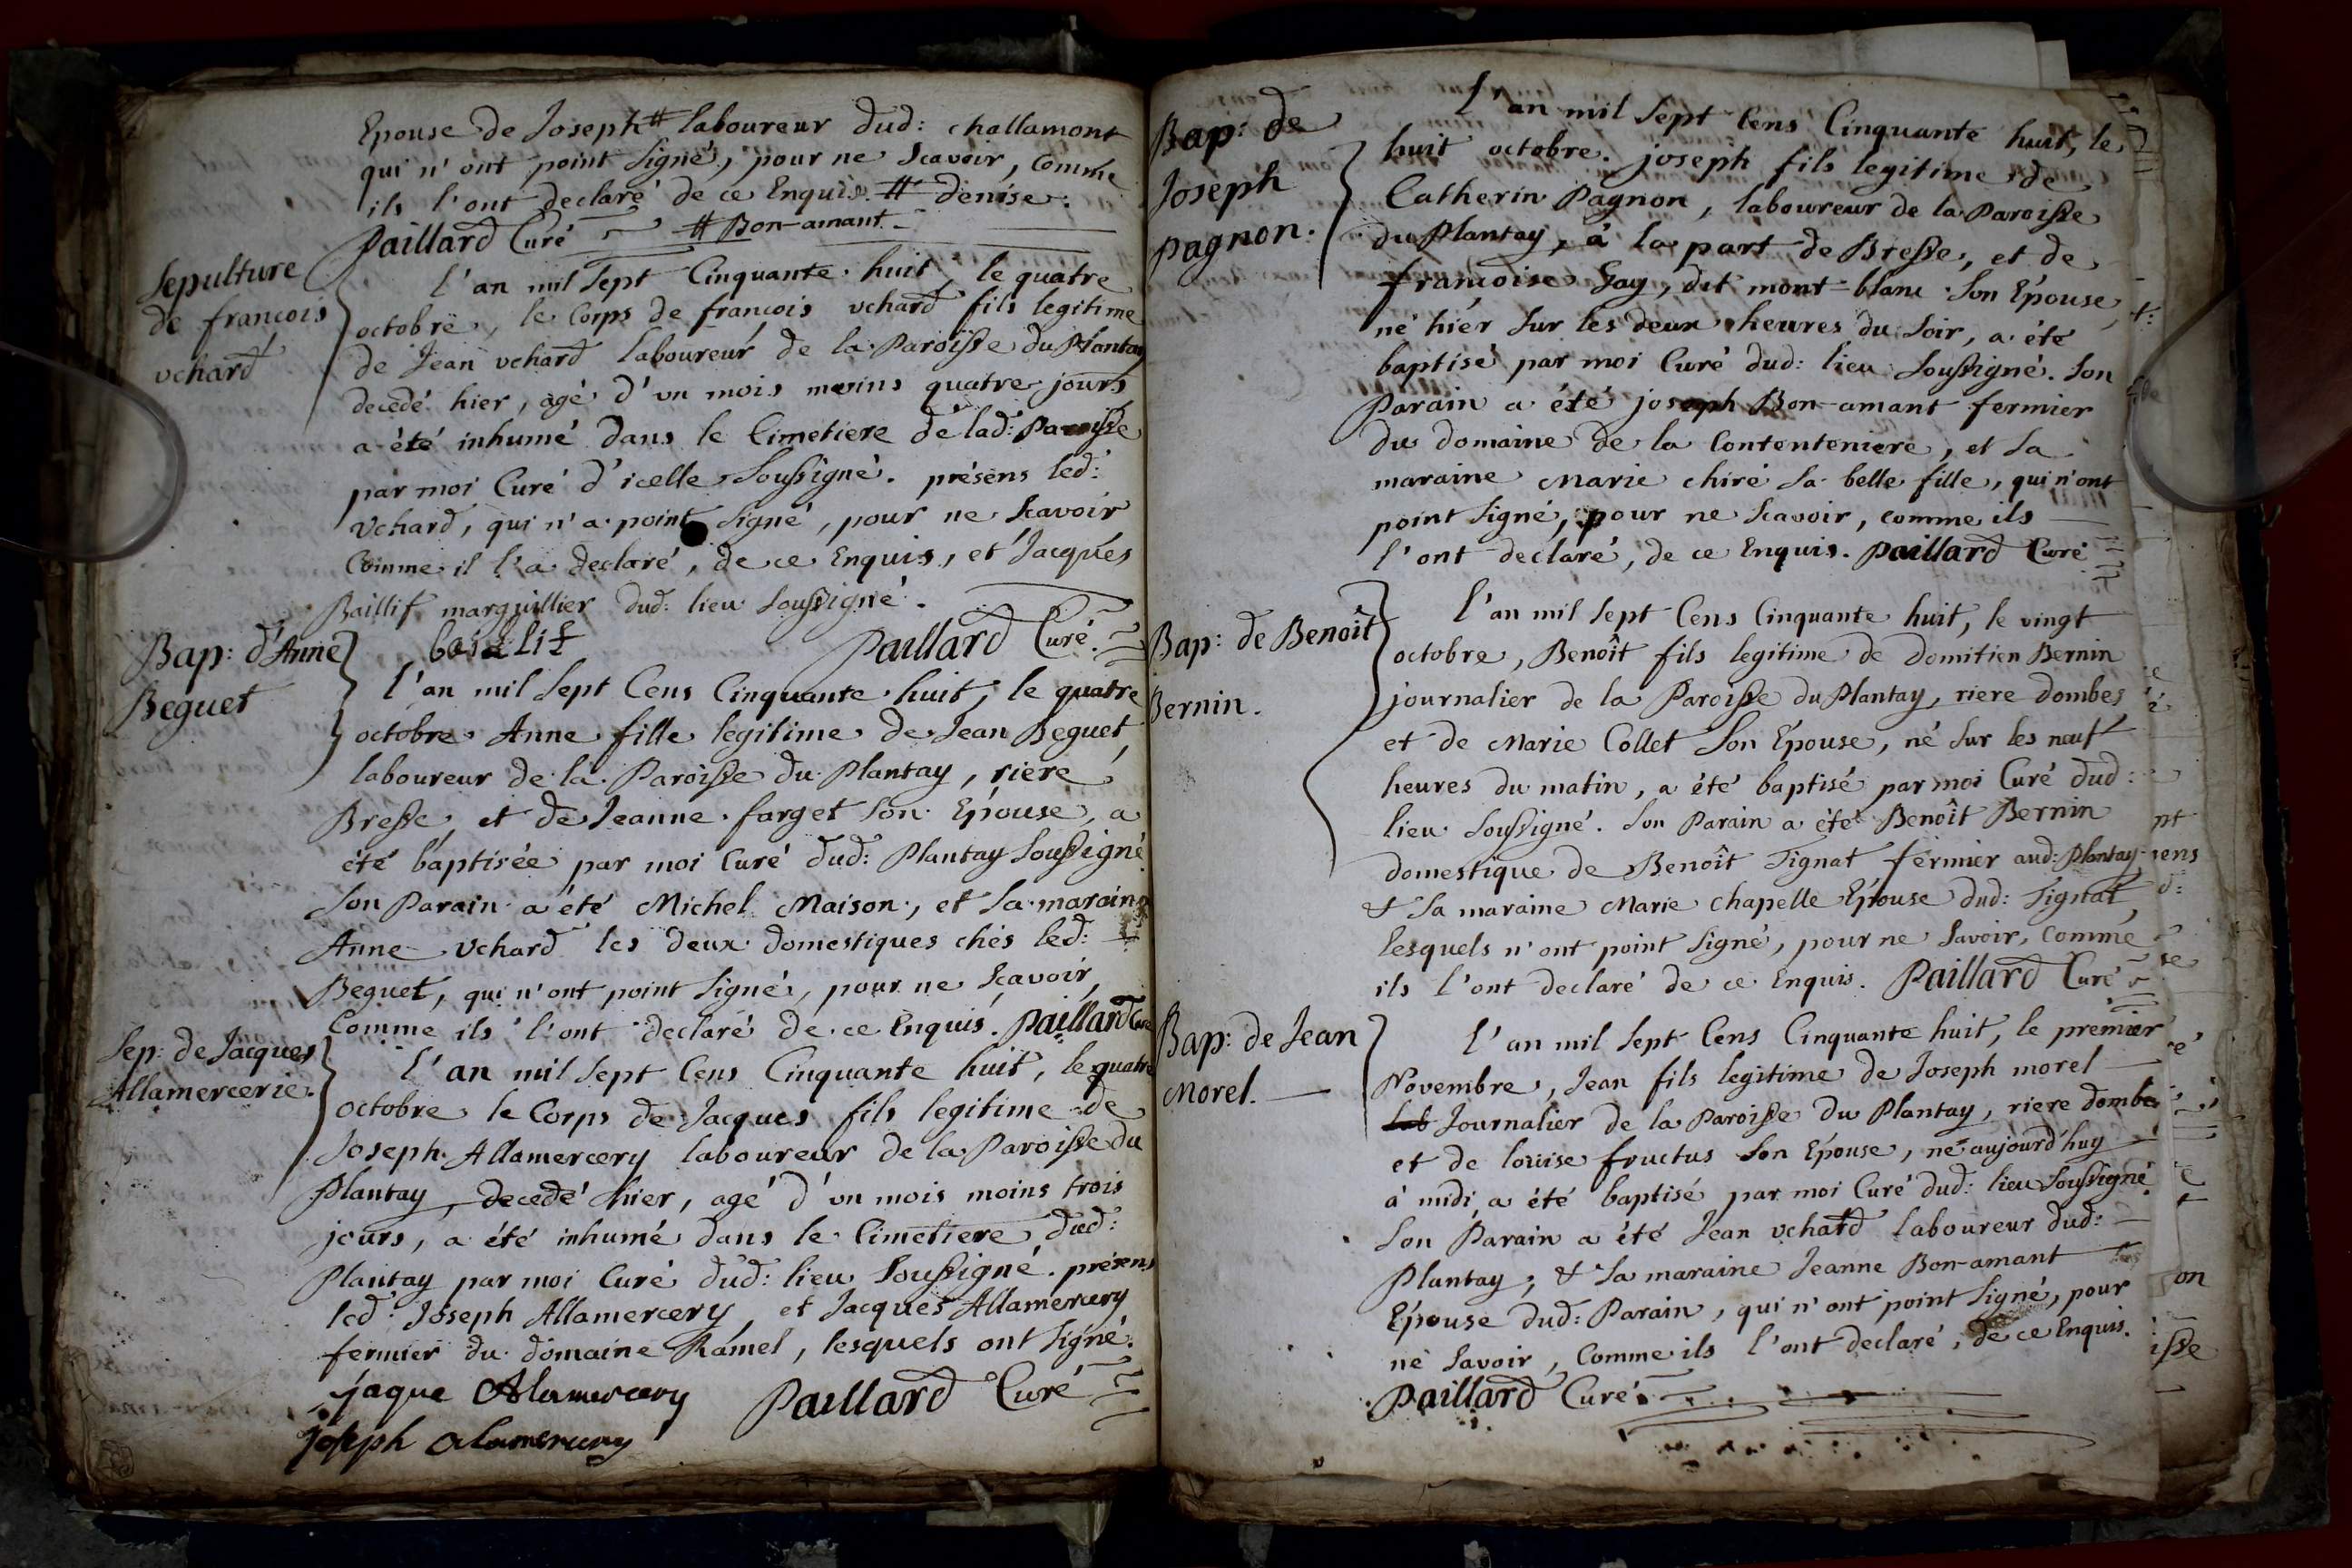 Epouse de Joseph # laboureur dud: challamont
qui n'ont point signé, pour ne scavoir, comme
ils l'ont declaré de ce Enquis. # denise.
Paillard Curé # Bon-amant
Sepulture
de francois
vchard
l'an mil sept Cinquante huit, le quatre
octobre, le Corps de francois vchard fils legitime
de Jean vchard laboureur de la Paroisse du Plantay
decedé hier, agé d'un mois moins quatre jours
a été inhumé dans le Cimetiere de lad: Paroisse
par moi Curé d'icelle soussigné. présens led:
vchard, qui n'a point signé, pour ne scavoir
Comme il l'a declaré, de ce Enquis, et Jacques
Baillif marguillier dud: lieu soussigné.
baillif Paillard Curé
Bap: d'Anne
Beguet
l'an mil sept Cens Cinquante huit, le quatre
octobre Anne fille legitime de Jean Beguet,
laboureur de la Paroisse du Plantay, riere
Bresse, et de Jeanne farget son Epouse, a
été baptisée par moi Curé dud: Plantay soussigné
son Parain a été Michel Maison, et sa maraine
Anne vchard les deux domestiques chés led:
Beguet, qui n'ont point signé, pour ne scavoir,
Comme ils l'ont declaré de ce Enquis. Paillard Curé
Sep: de Jacques
Allamercerie.
l'an mil sept Cens Cinquante huit, le quatre
octobre le Corps de Jacques fils legitime de
Joseph Allamercery laboureur de la Paroisse du
Plantay, decedé hier, agé d'un mois moins trois
jours, a été inhumé dans le Cimetiere dud:
Plantay par moi Curé dud: lieu soussigné. présens
led: Joseph Allamercery, et Jacques Allamercery
fermier du domaine Ramel, lesquels ont signé.
jaque Alamercery Paillard Curé
joseph alamercery
Bap: de
Joseph
pagnon.
l'an mil sept Cens Cinquante huit, le
huit octobre. joseph fils legitime de
Catherin Pagnon, laboureur de la Paroisse
du Plantay, à la part de Bresse, et de
francoise Gay, dit mont-blanc son Epouse,
né hiér sur les deux heures du soir, a été
baptisé par moi Curé dud: lieu soussigné. son
Parain a été joseph Bon-amant fermier
du domaine de la Contenteniere, et sa
maraine Marie chiré sa belle fille, qui n'ont
point signé, pour ne scavoir, comme ils
l'ont declaré, de ce Enquis. Paillard Curé
Bap: de Benoît
Bernin.
l'an mil sept Cens Cinquante huit, le vingt
octobre, Benoît fils legitime de Domitien Bernin
journalier de la Paroisse du Plantay, riere dombes
et de Marie Collet son Epouse, né sur les neuf
heures du matin, a été baptisé par moi Curé dud:
lieu soussigné. son Parain a été Benoît Bernin
domestique de Benoît Signat fermier aud: Plantay
& sa maraine Marie chapelle Epouse dud: Signat,
lesquels n'ont point signé, pour ne savoir, comme
ils l'ont declaré de ce Enquis. Paillard Curé
Bap: de Jean
Morel.
l'an mil sept Cens Cinquante huit, le premier
Novembre, Jean fils legitime de Joseph morel
lab Journalier de la Paroisse du Plantay, riere dombes
et de louise fructus son Epouse, né aujourd'huy
à midi, a été baptisé par moi Curé dud: lieu soussigné
son Parain a été Jean vchard laboureur dud:
Plantay; & sa maraine Jeanne Bon-amant
Epouse dud: Parain, qui n'ont point signé, pour
ne savoir, Comme ils l'ont declaré, de ce Enquis.
Paillard Curé